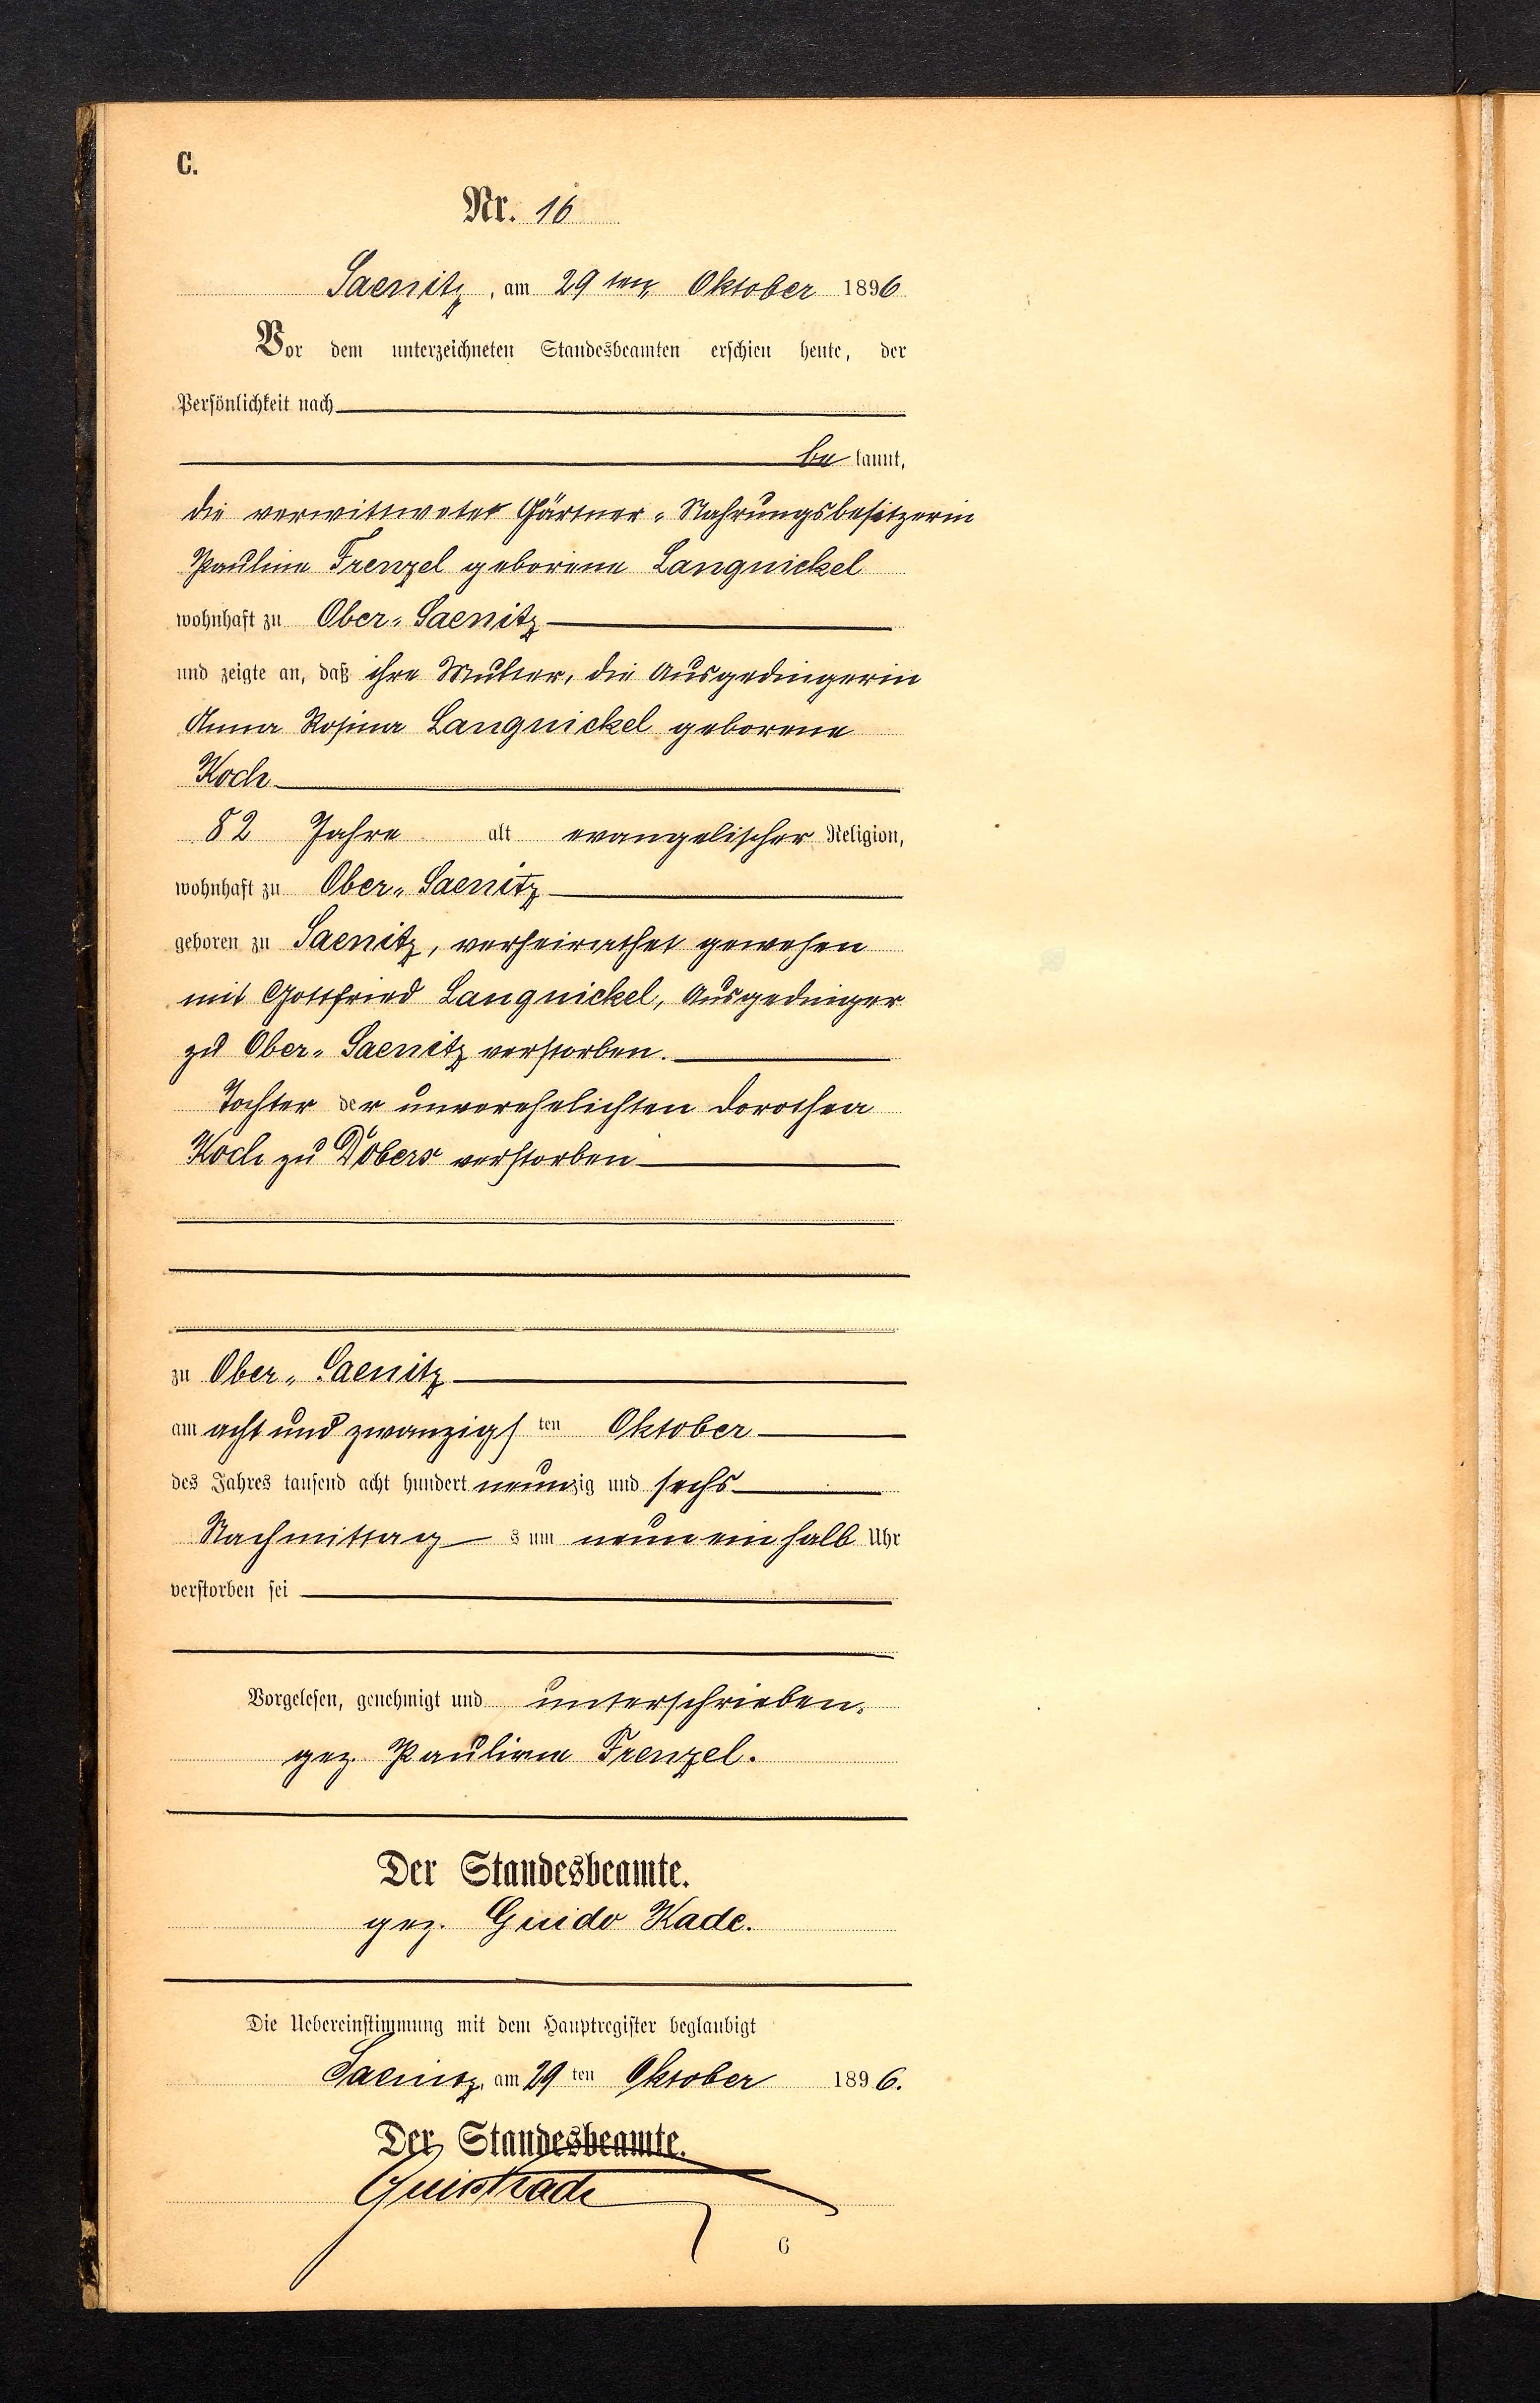 C.
Nr. 16
Saenitz, am 29 ten Oktober 1896
Vor dem unterzeichneten Standesbeamten erschien heute, der
Persönlichkeit nach
be kannt,
die verwittwete Gärtner-Nahrungsbesitzerin
Pauline Frenzel geborene Langnickel
wohnhaft zu Ober-Saenitz
und zeigte an, daß ihre Mutter, die Ausgedingerin
Anna Rosina Langnickel geborene
Koch
82 Jahre alt evangelischer Religion,
wohnhaft zu Ober-Saenitz
geboren zu Saenitz, verheirathet gewesen
mit Gottfried Langnickel, Ausgedinger
zu Ober-Saenitz verstorben.
Tochter der unverehelichten Dorothea
Koch zu Dobers verstorben
zu Ober-Saenitz
am acht und zwanzigs ten Oktober
des Jahres tausend acht hundert neunzig und sechs
Nachmittag s um neun ein halb Uhr
verstorben sei
Vorgelesen, genehmigt und unterschrieben.
gez. Pauline Frenzel.
Der Standesbeamte.
gez. Guido Kade.
Die Uebereinstimmung mit dem Hauptregister beglaubigt
Saenitz, am 29 ten Oktober 1896.
Der Standesbeamte.
Guido Kade
6